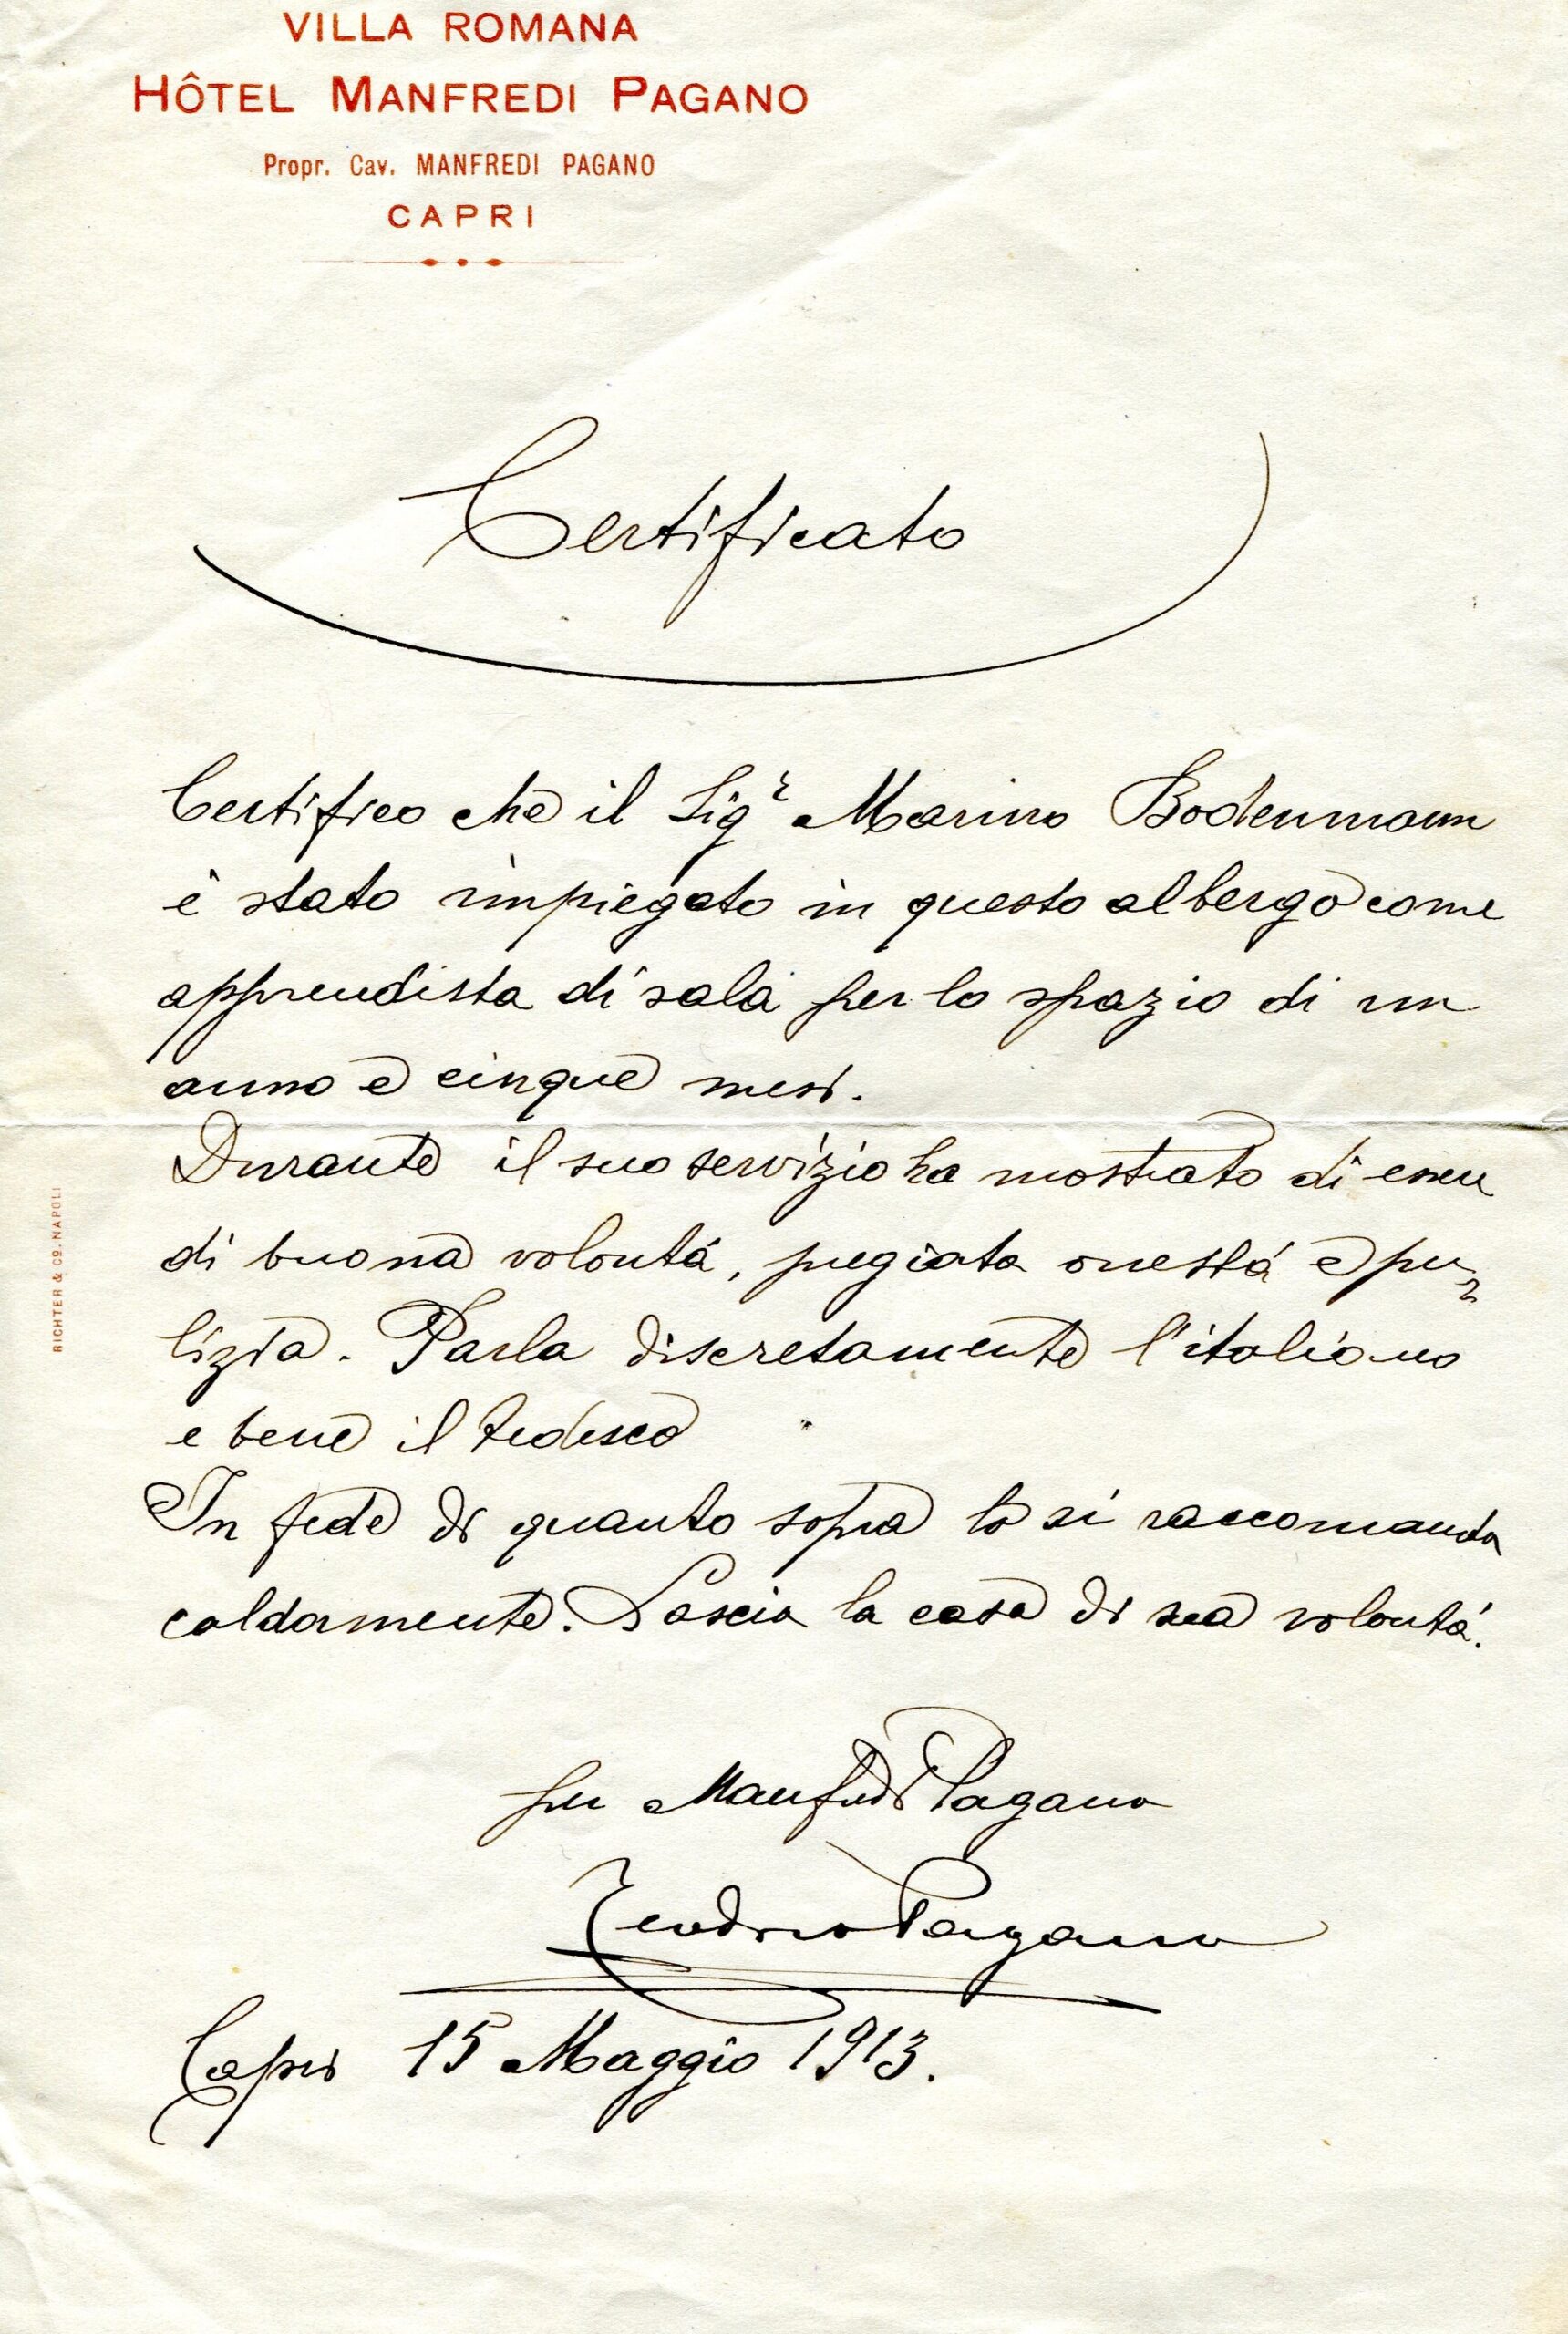 VILLA ROMANA
HÔTEL MANFREDI PAGANO
Propr. Cav. MANFREDI PAGANO
CAPRI
Certificato
Certifico che il Sigr Marino Bodenmann
è stato impiegato in questo albergo come
apprendista di sala per lo spazio di un
anno e cinque mesi.
Durante il suo servizio ha mostrato di essere
di buona volontá, pregiata onestá e pu-
lizia. Parla discretamente l'italiano
e bene il tedesco
In fede di quanto sopra lo si raccomanda
caldamente. Lascia la casa di sua volontá.
per Manfredi Pagano
Pagano
Capri 15 Maggio 1913.
RICHTER & CO. NAPOLI